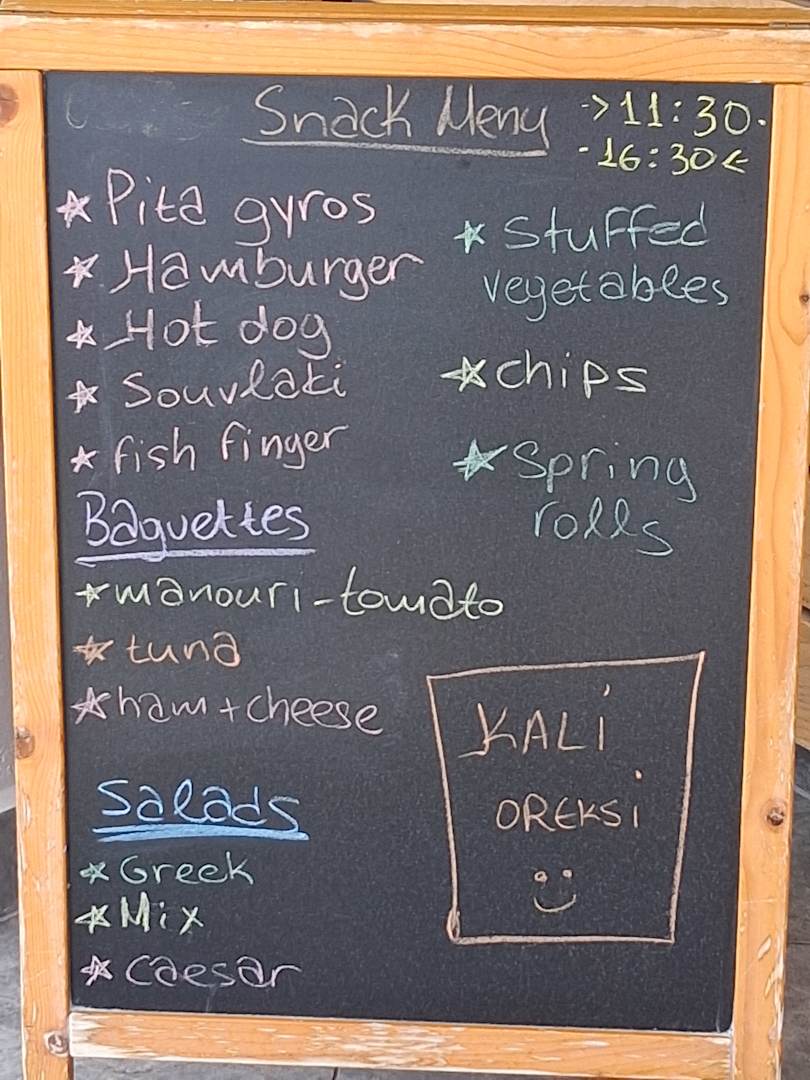 Snack Menu
→11:30.
-16:30←
* Pita gyros
* Hamburger
* Hot dog
* Souvlaki
* fish finger
* Stuffed
vegetables
* chips
* Spring
rolls
Baguettes
* manouri-tomato
* tuna
* ham + cheese
Salads
* Greek
* Mix
* caesar
KALi
OREKSi